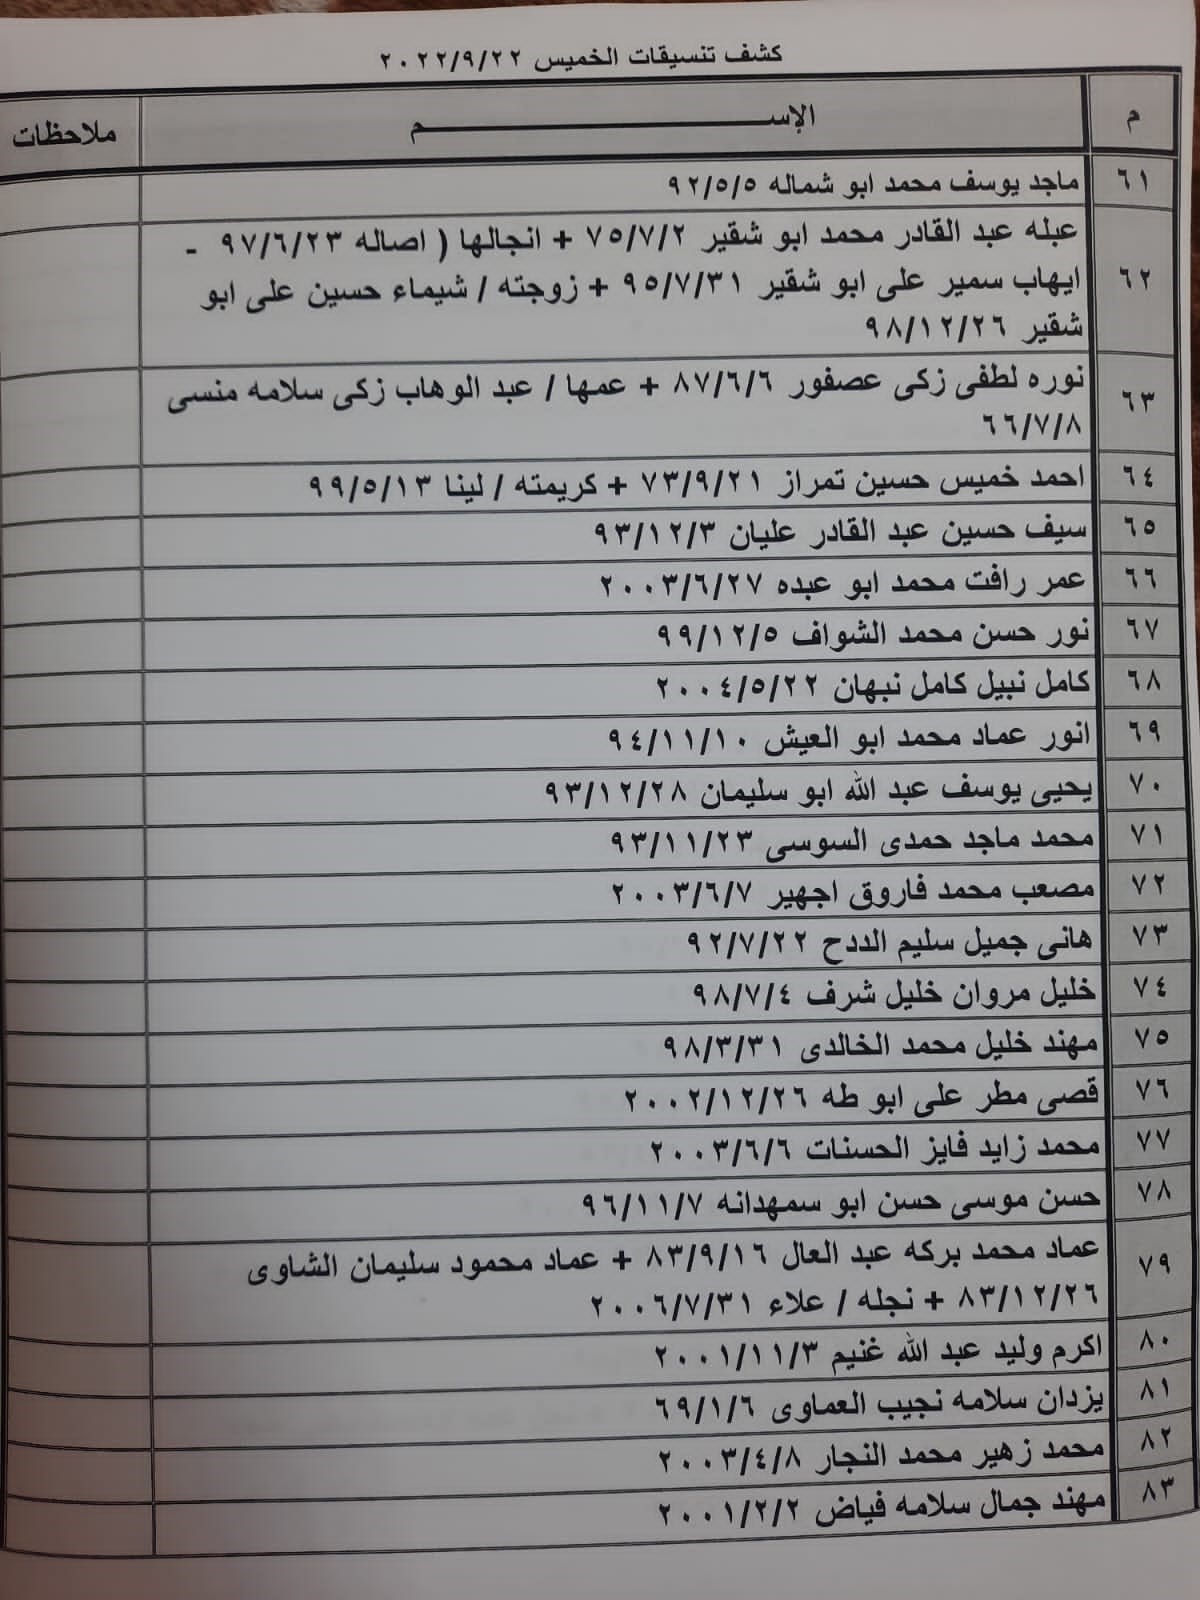 كشف تنسيقات الخميس ٢٠٢٢/٩/٢٢
م الإســـــــــــــــــــم ملاحظات
٦١ ماجد يوسف محمد ابو شماله ٩٢/٥/٥
٦٢ عبله عبد القادر محمد ابو شقير ٧٥/٧/٢ + انجالها ( اصاله ٩٧/٦/٢٣ -
ايهاب سمير على ابو شقير ٩٥/٧/٣١ + زوجته / شيماء حسين على ابو
شقير ٩٨/١٢/٢٦
٦٣ نوره لطفى زكى عصفور ٨٧/٦/٦ + عمها / عبد الوهاب زكى سلامه منسى
٦٦/٧/٨
٦٤ احمد خميس حسين تمراز ٧٣/٩/٢١ + كريمته / لينا ٩٩/٥/١٣
٦٥ سيف حسين عبد القادر عليان ٩٣/١٢/٣
٦٦ عمر رافت محمد ابو عبده ٢٠٠٣/٦/٢٧
٦٧ نور حسن محمد الشواف ٩٩/١٢/٥
٦٨ كامل نبيل كامل نبهان ٢٠٠٤/٥/٢٢
٦٩ انور عماد محمد ابو العيش ٩٤/١١/١٠
٧٠ يحيى يوسف عبد الله ابو سليمان ٩٣/١٢/٢٨
٧١ محمد ماجد حمدى السوسى ٩٣/١١/٢٣
٧٢ مصعب محمد فاروق اجهير ٢٠٠٣/٦/٧
٧٣ هانى جميل سليم الددح ٩٢/٧/٢٢
٧٤ خليل مروان خليل شرف ٩٨/٧/٤
٧٥ مهند خليل محمد الخالدى ٩٨/٣/٣١
٧٦ قصى مطر على ابو طه ٢٠٠٢/١٢/٢٦
٧٧ محمد زايد فايز الحسنات ٢٠٠٣/٦/٦
٧٨ حسن موسى حسن ابو سمهدانه ٩٦/١١/٧
٧٩ عماد محمد بركه عبد العال ٨٣/٩/١٦ + عماد محمود سليمان الشاوى
٨٣/١٢/٢٦ + نجله / علاء ٢٠٠٦/٧/٣١
٨٠ اكرم وليد عبد الله غنيم ٢٠٠١/١١/٣
٨١ يزدان سلامه نجيب العماوى ٦٩/١/٦
٨٢ محمد زهير محمد النجار ٢٠٠٣/٤/٨
٨٣ مهند جمال سلامه فياض ٢٠٠١/٢/٢